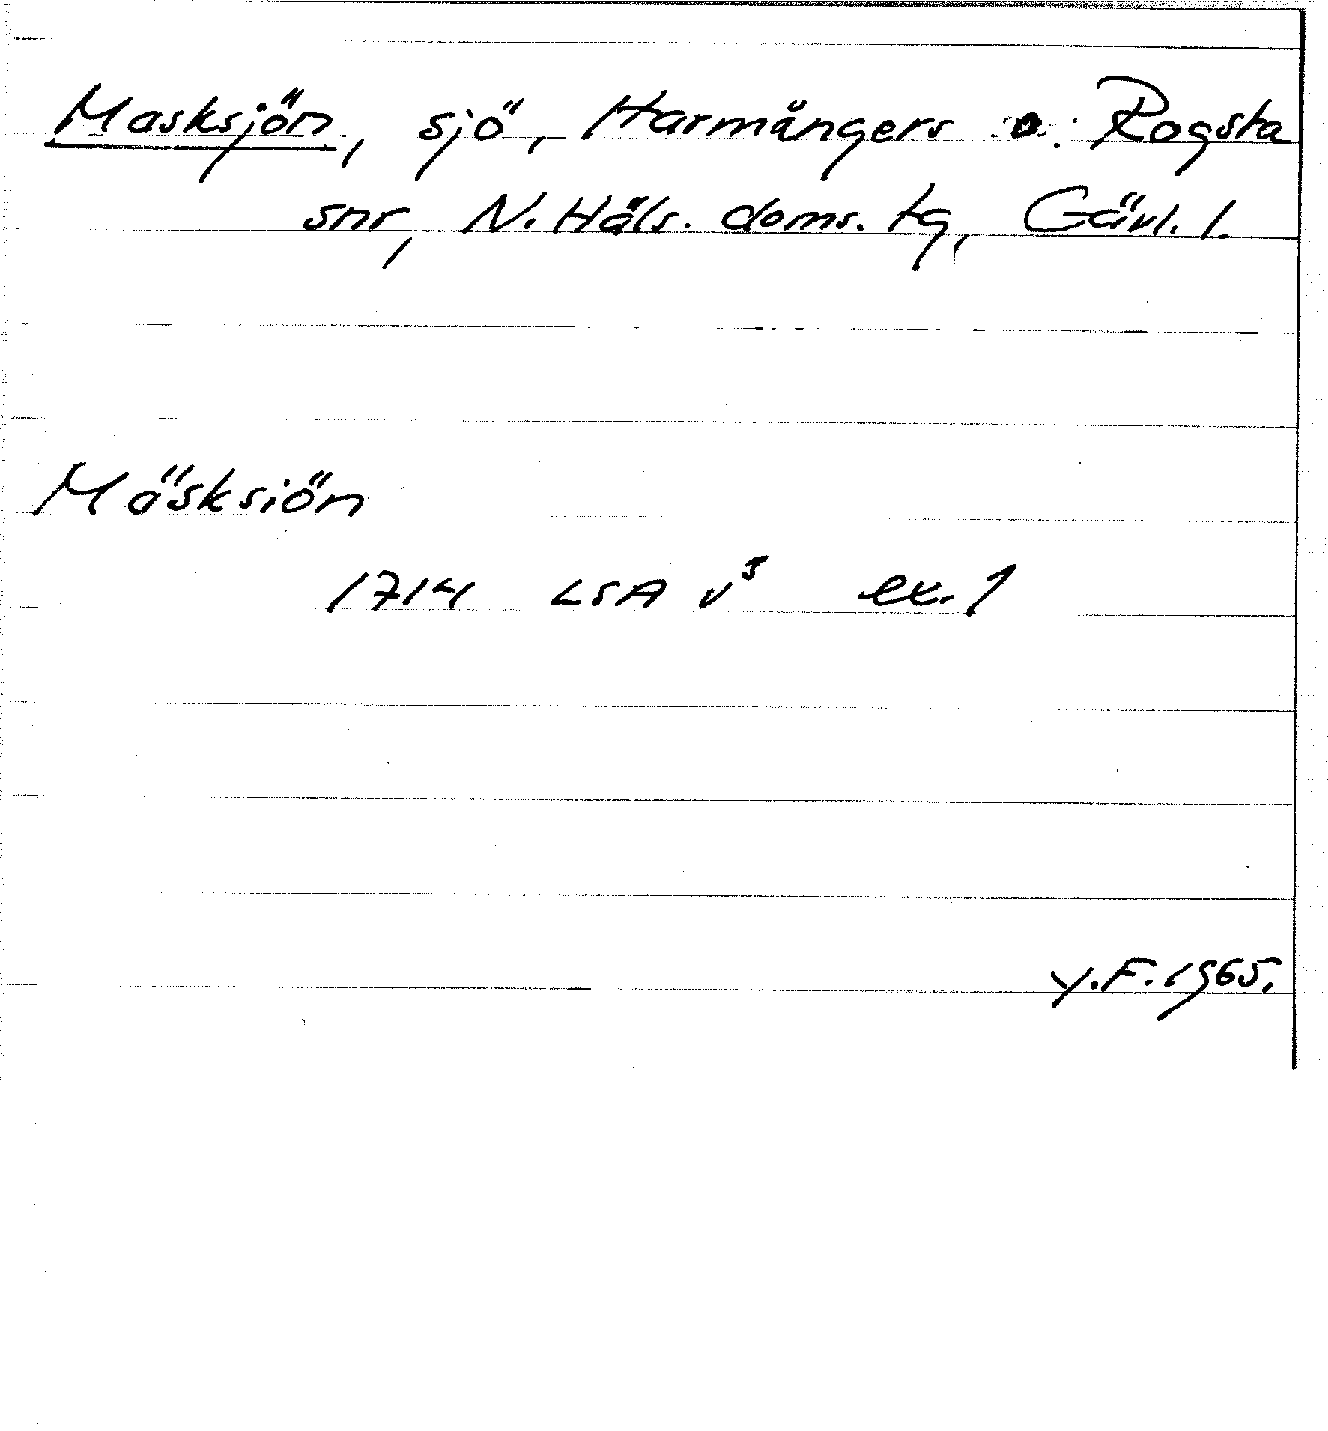 Masksjön, sjö, Harmångers o. Rogsta
snr, N. Häls. doms. tg, Gävl. l.
Mäsksiön
1714 LSA v³ ex. 1
Y.F. 1965.